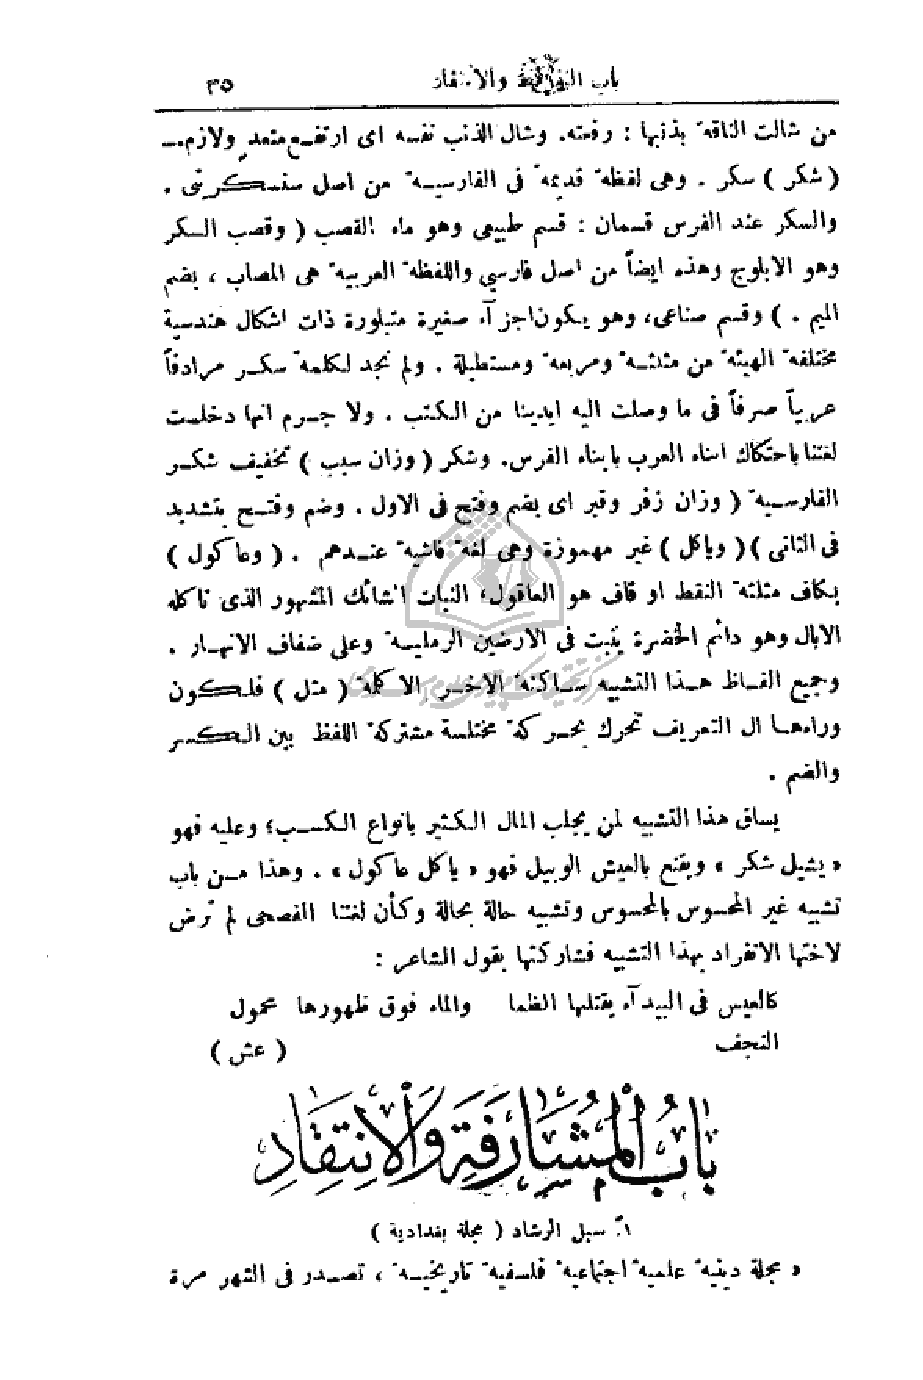 باب المشارفة والانتقاد ٣٥
من شالت الناقة بذنبها : رفعته. وشال الذنب نفسه اى ارتفع متعد ولازم.ــ
( شكر ) سكر . وهى لفظة قديمة فى الفارسية من اصل سنسكريتى .
والسكر عند الفرس قسمان : قسم طبيعى وهو ماء القصب ( وقصب السكر
وهو الابلوج وهذه ايضاً من اصل فارسي واللفظة العربية هى المصاب ، بضم
الميم . ) وقسم صناعى، وهو يكون اجزآء صغيرة متبلورة ذات اشكال هندسية
مختلفة الهيئة من مثلثة ومربعة ومستطيلة . ولم نجد لكلمة سكر مرادفاً
عربياً صرفاً فى ما وصلت اليه ايدينا من الكتب . ولا جرم انها دخلت
لغتنا باحتكاك ابناء العرب بابناء الفرس. وشكر ( وزان سبب ) تخفيف شكر
الفارسية ( وزان زفر وقبر اى بضم وفتح فى الاول . وضم وفتح بتشديد
فى الثانى ) ( وياكل ) غير مهموزة وهى لغة فاشية عندهم . ( وعاكول )
بكاف مثلثة النقط او قاف هو العاقول، النبات الشائك المشهور الذى تاكله
الابال وهو دائم الخضرة ينبت فى الارضين الرملية وعلى ضفاف الانهار .
وجميع الفاظ هذا التشبيه ساكنة الاخر الا كلمة ( مثل ) فلكون
وراءها ال التعريف تحرك بحركة مختلسة مشتركة اللفظ بين الكسر
والضم .
يساق هذا التشبيه لمن يجلب المال الكثير بانواع الكسب؛ وعليه فهو
« يشيل شكر » ويقنع بالعيش الوبيل فهو « ياكل عاكول » . وهذا من باب
تشبيه غير المحسوس بالمحسوس وتشبيه حالة بحالة وكأن لغتنا الفصحى لم ترض
لاختها الانفراد بهذا التشبيه فشاركتها بقول الشاعر :
كالعيس فى البيدآء يقتلها الظما والماء فوق ظهورها محمول
النجف ( عش )
باب المشارفة والانتقاد
١. سبل الرشاد ( مجلة بغدادية )
« مجلة دينية علمية اجتماعية فلسفية تاريخية ، تصدر فى الشهر مرة